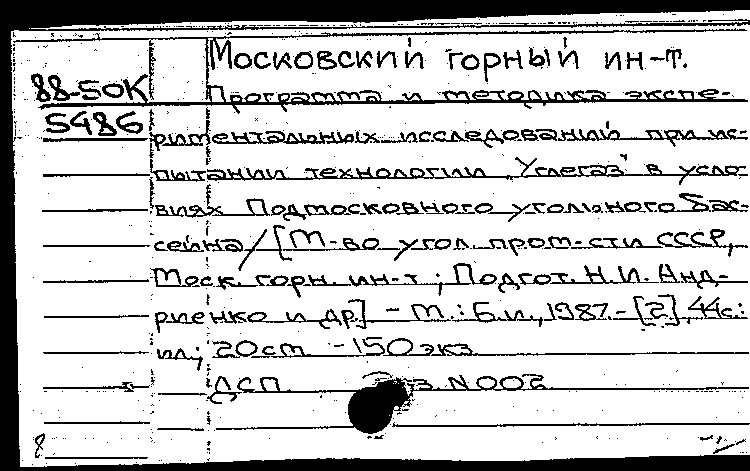 Московский горный ин-т.
88-50К
Программа и методика экспе-
5486
риментальных исследований при ис-
пытании технологии „Углегаз" в усло-
виях Подмосковного угольного бас-
сейна / [М-во угол. пром-сти СССР,
Моск. горн. ин-т ; Подгот. Н.И. Анд-
риенко и др.] - М. : Б.и., 1987. - [2], 44с.:
ил; 20см. - 150экз.
ДСП. Экз. N002
8